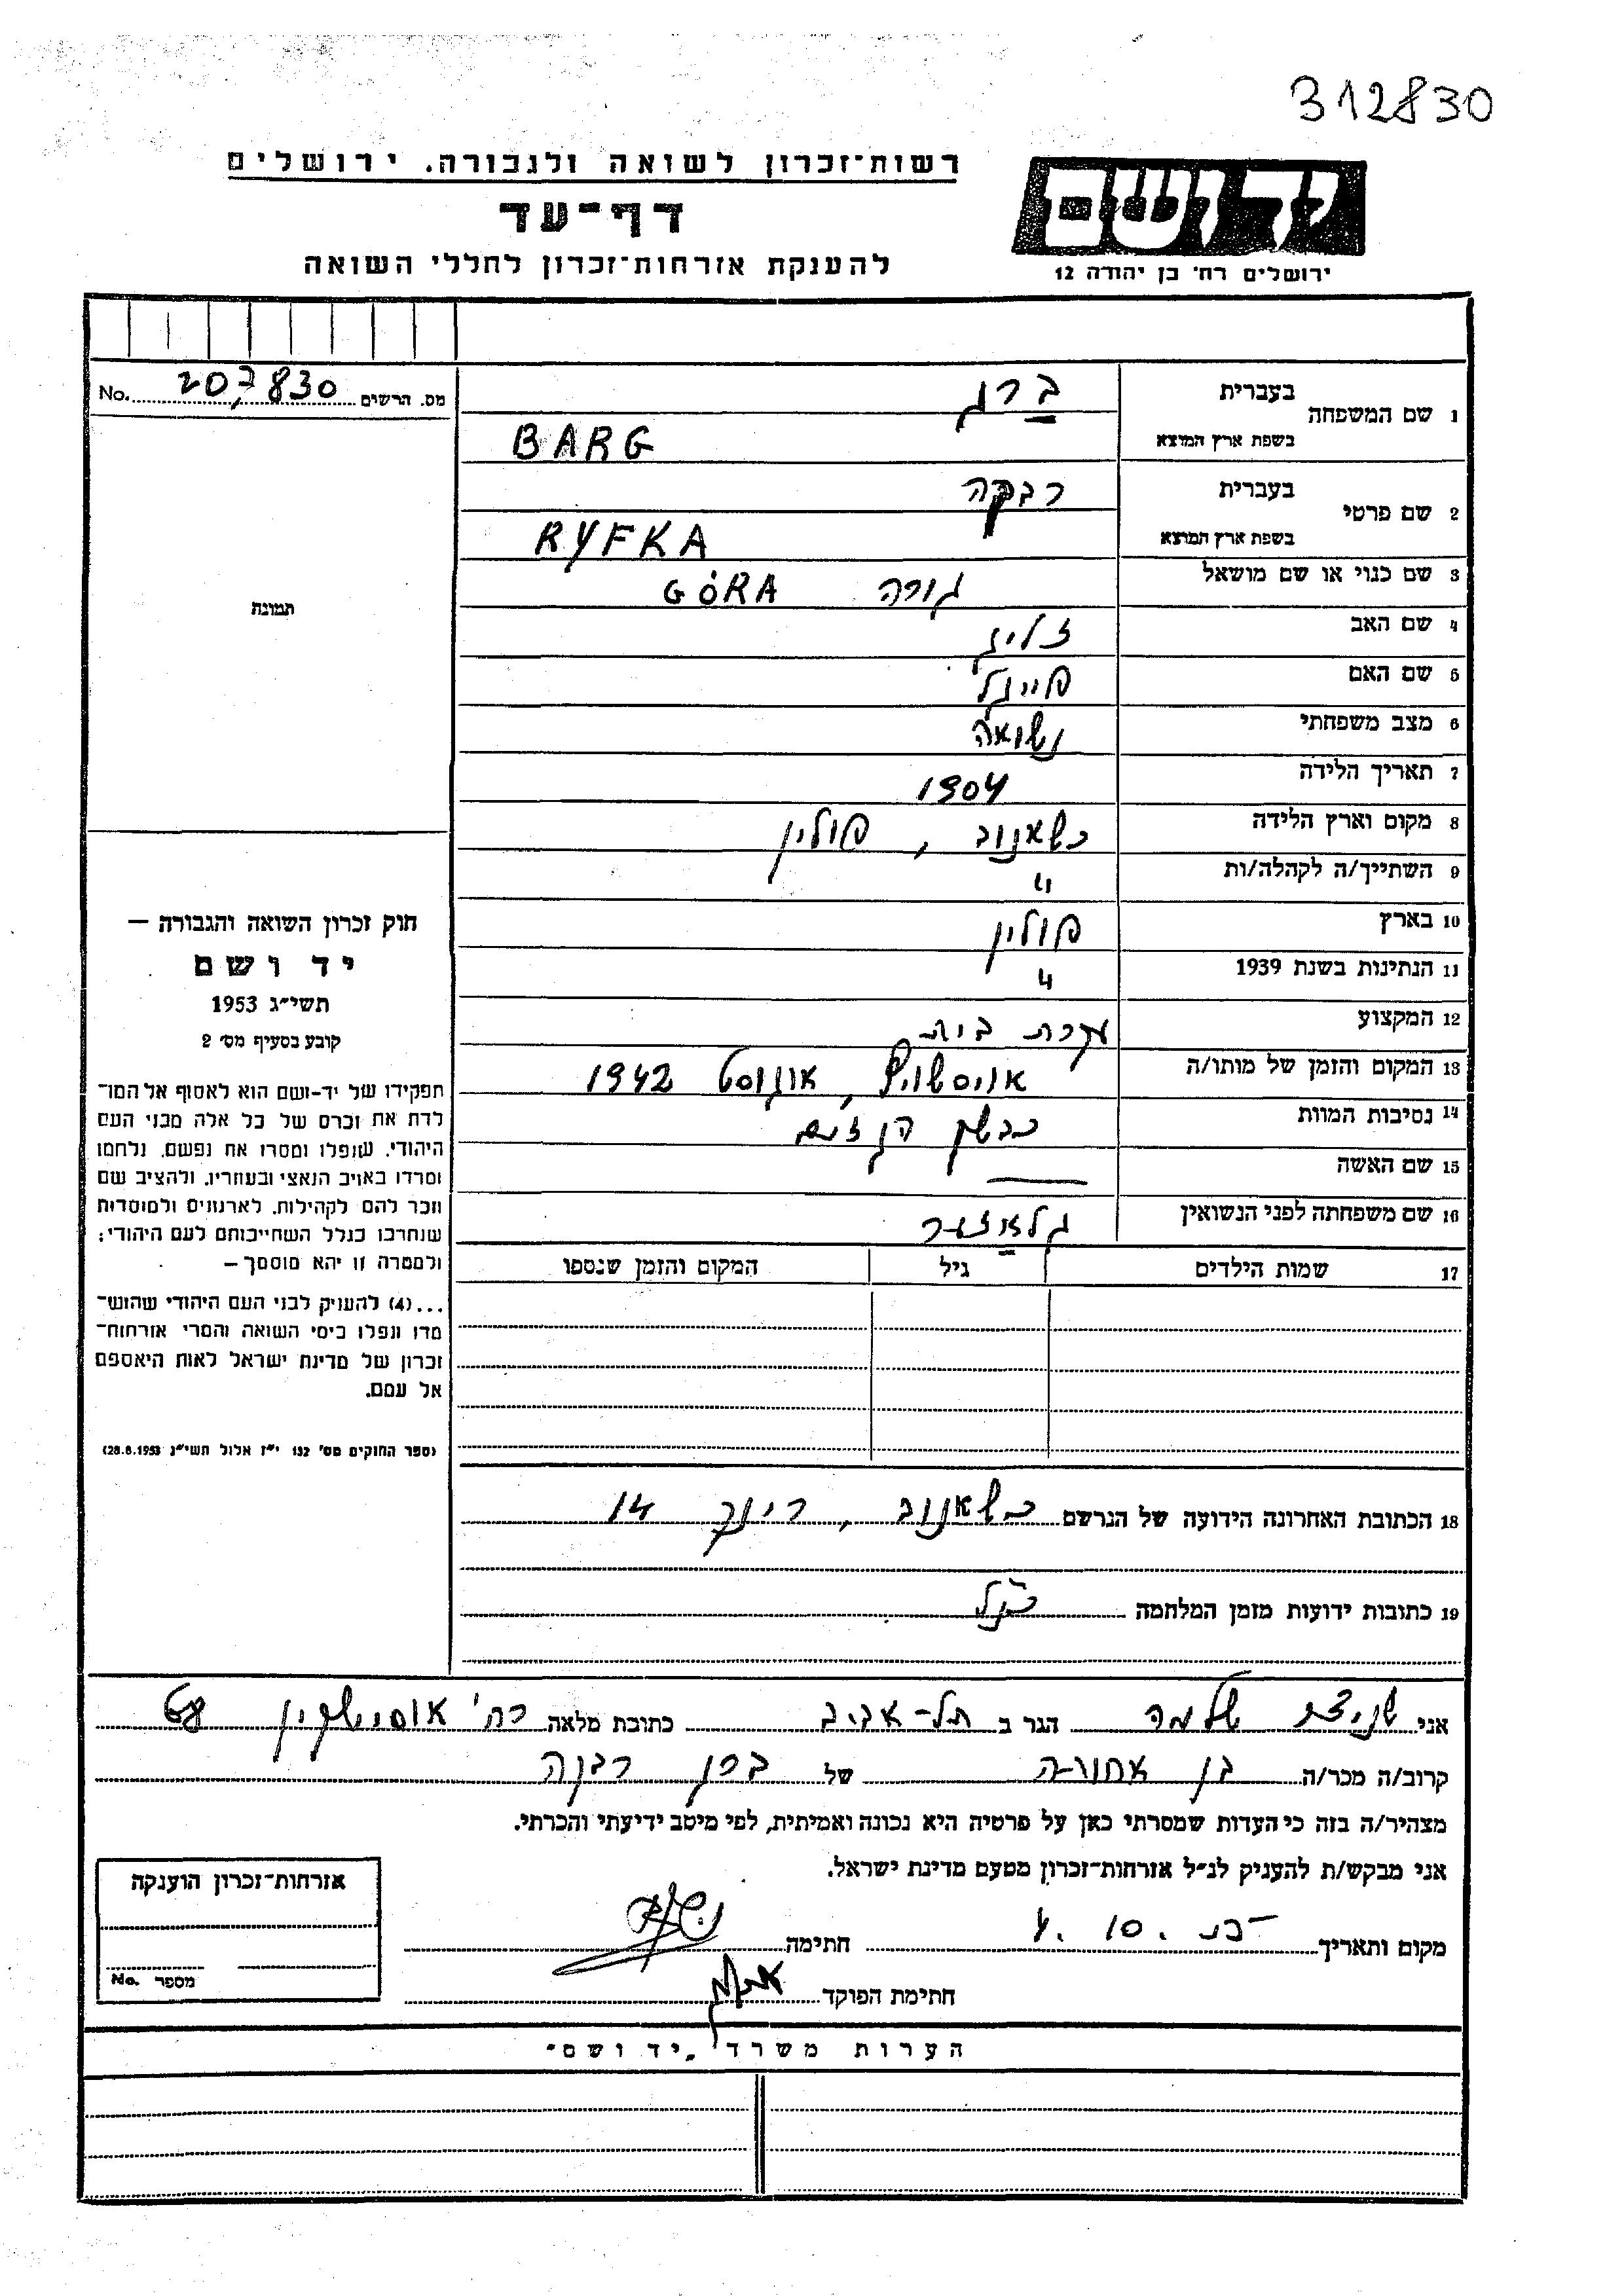 312830
רשות־זכרון לשואה ולגבורה. ירושלים
יד ושם
דף־עד
להענקת אזרחות־זכרון לחללי השואה
ירושלים רח׳ בן יהודה 12
בעברית ברג
1 שם המשפחה
בשפת ארץ המוצא BARG
מס. הרשים 207,830 No.
בעברית רבקה
2 שם פרטי
בשפת ארץ המוצא RYFKA
3 שם כנוי או שם מושאל גורה GÓRA
תמונה
4 שם האב זליג
5 שם האם פייגל
6 מצב משפחתי נשואה
7 תאריך הלידה 1904
8 מקום וארץ הלידה כשאנוב, פולין
9 השתייך/ה לקהלה/ות "
10 בארץ פולין
11 הנתינות בשנת 1939 "
12 המקצוע עקרת בית
13 המקום והזמן של מותו/ה אוישוויץ, אוגוסט 1942
14 נסיבות המוות
15 שם האשה —
16 שם משפחתה לפני הנשואין
17 שמות הילדים גיל המקום והזמן שנספו
חוק זכרון השואה והגבורה —
יד ושם
תשי״ג 1953
קובע בסעיף מס׳ 2
תפקידו של יד-ושם הוא לאסוף אל המו־
לדת את זכרם של כל אלה מבני העם
היהודי, שנפלו ומסרו את נפשם, נלחמו
ומרדו באויב הנאצי ובעוזריו, ולהציב שם
וזכר להם לקהילות, לארגונים ולמוסדות
שנחרבו בגלל השתייכותם לעם היהודי;
ולמטרה זו יהא מוסמך —
...(4) להעניק לבני העם היהודי שהוש־
מדו ונפלו בימי השואה והמרי אזרחות־
זכרון של מדינת ישראל לאות היאספם
אל עמם.
(ספר החוקים מס׳ 132 י״ז אלול תשי״ג 28.8.1953)
18 הכתובת האחרונה הידועה של הנרשם כשאנוב, רינק 14
19 כתובות ידועות מזמן המלחמה כנ"ל
אני שניצר שלמה הגר ב תל-אביב כתובת מלאה רח' אוסישקין 68
קרוב/ה מכר/ה בן אחותה של ברג רבקה
מצהיר/ה בזה כי העדות שמסרתי כאן על פרטיה היא נכונה ואמיתית, לפי מיטב ידיעתי והכרתי.
אני מבקש/ת להעניק לנ״ל אזרחות־זכרון מטעם מדינת ישראל.
אזרחות־זכרון הוענקה
מקום ותאריך 4. 10. חתימה
מספר No.
חתימת הפוקד
הערות משרד „יד ושם״